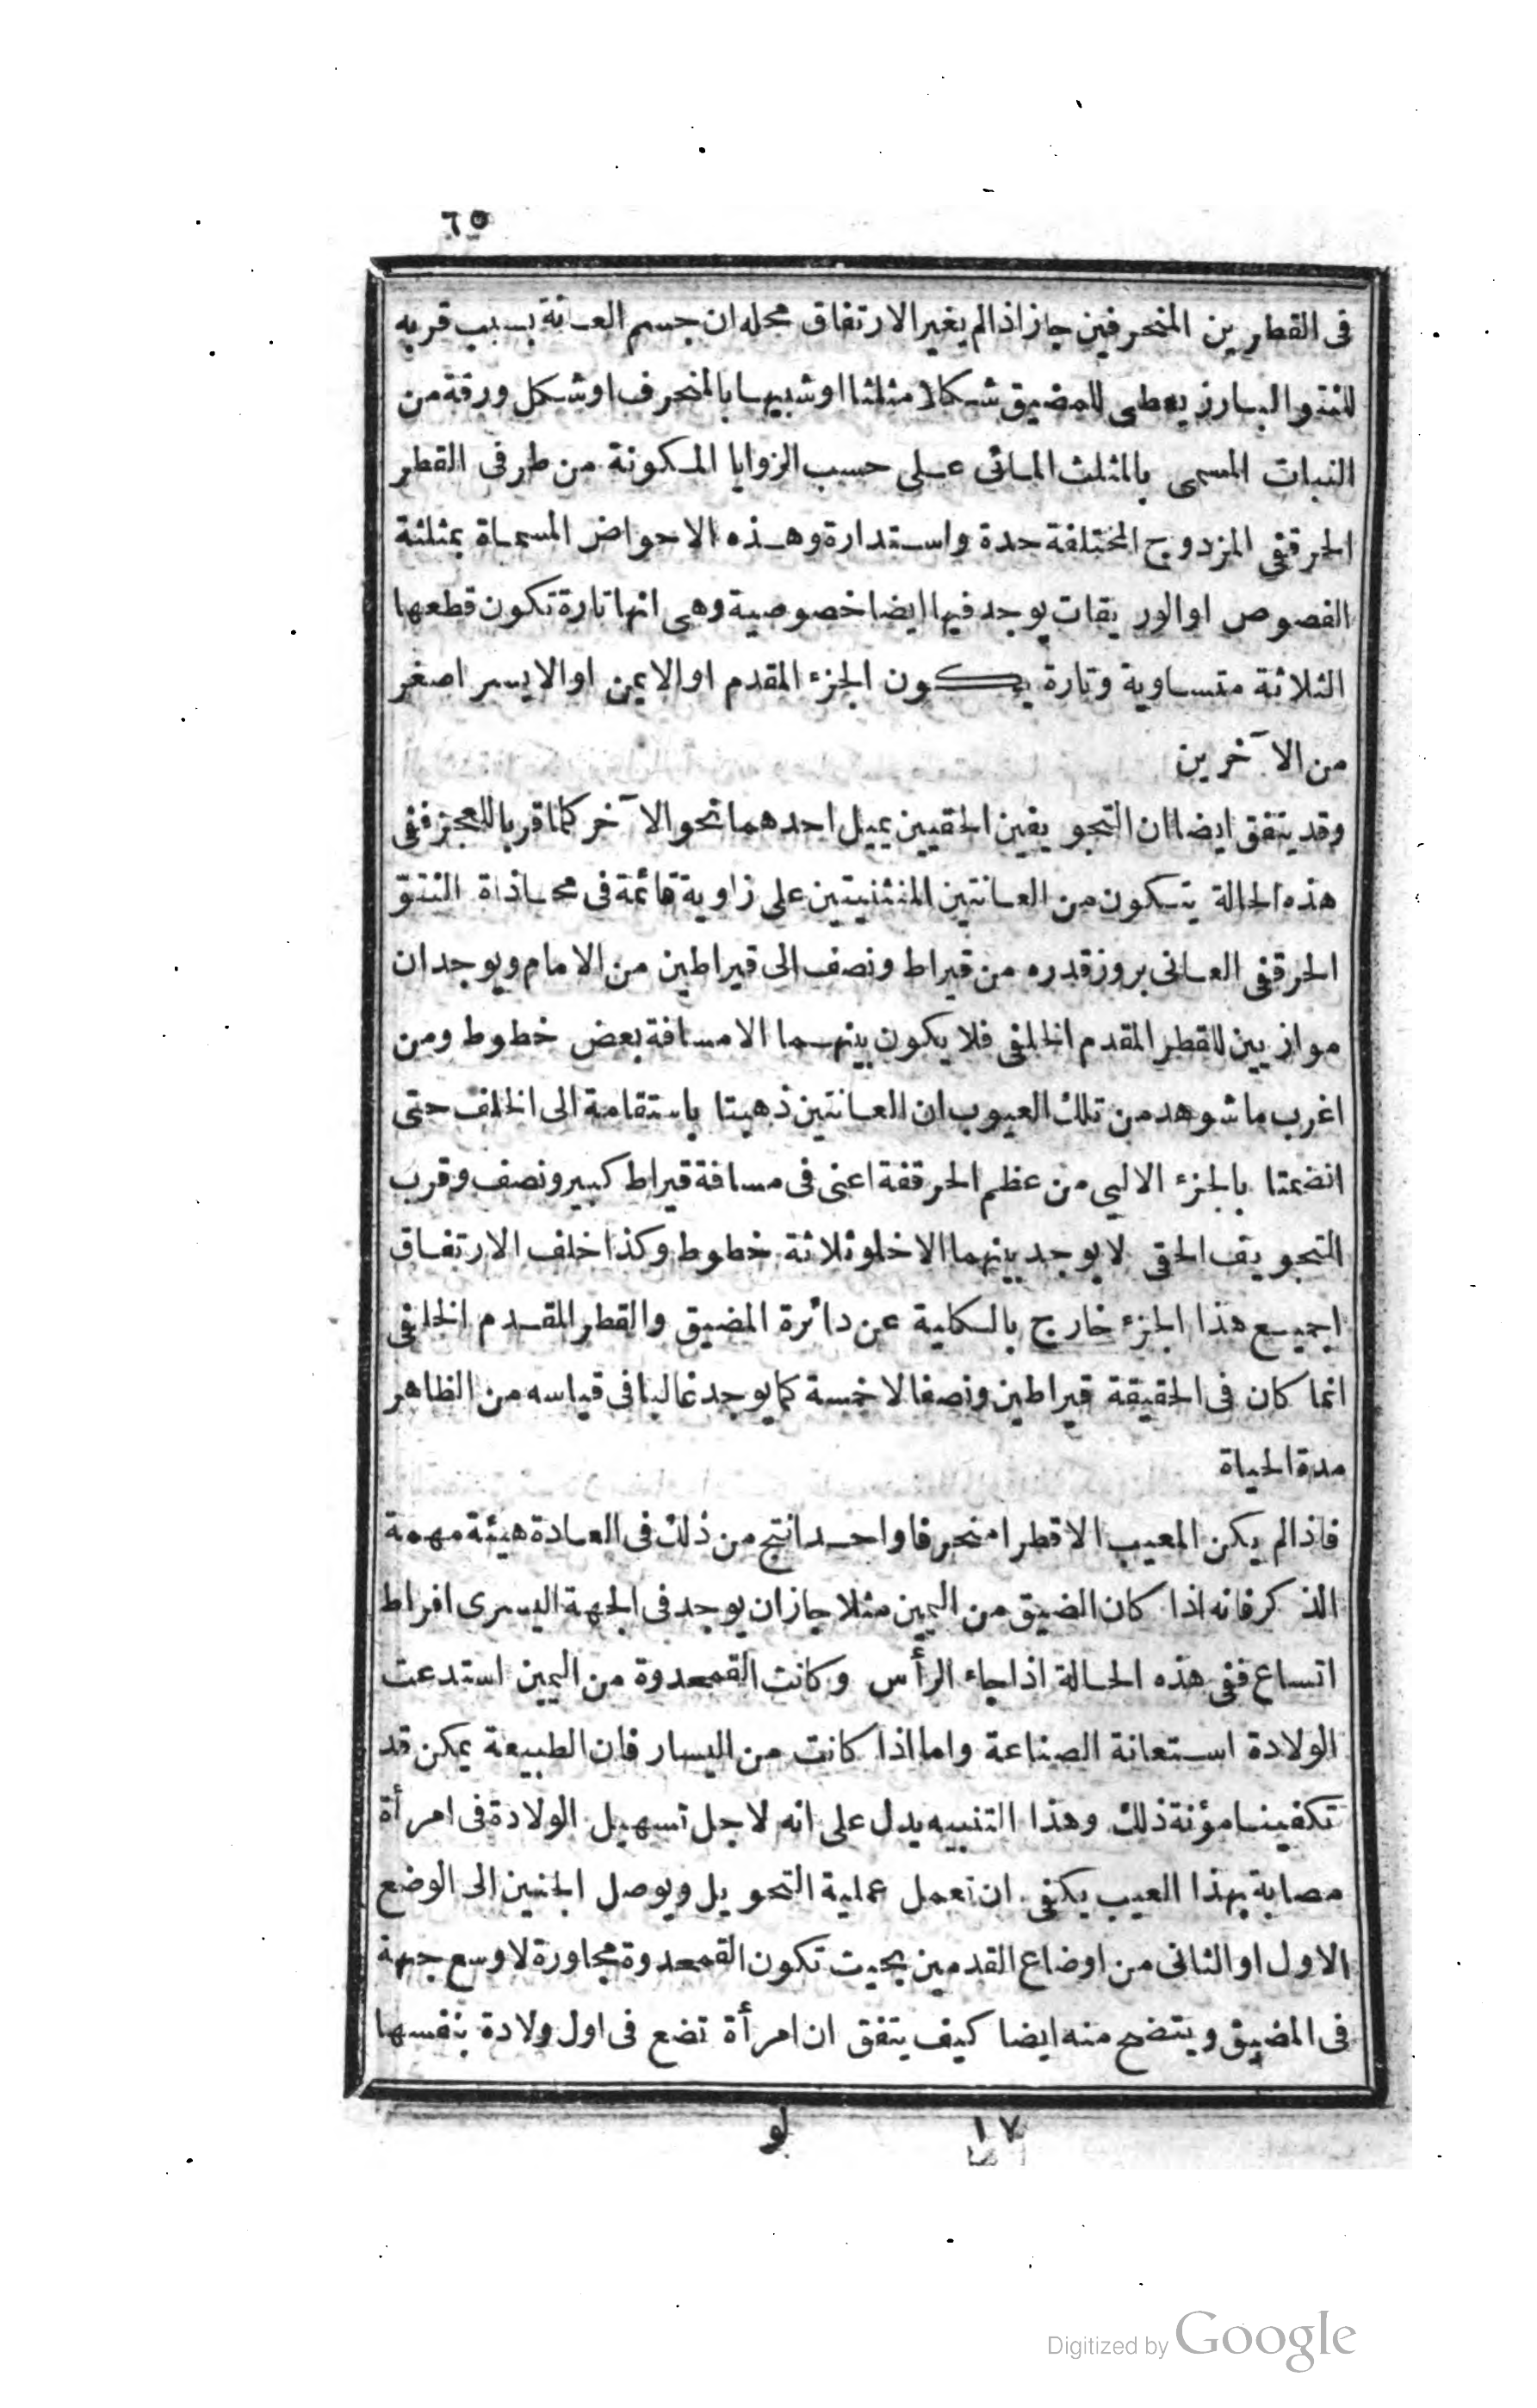 ٦٥
فى القطرين المنحرفين جاز اذا لم يغير الارتفاق محله ان جسم العانة بسبب قربه
للنتو البارز يعطى للمضيق شكلا مثلثا او شبيها بالمنحرف او شكل ورقة من
النبات المسمى بالمثلث المائى على حسب الزوايا المكونة من طرفى القطر
الحرقفى المزدوج المختلفة حدة واستدارة وهذه الاحواض المسماة بمثلثة
الفصوص او الوريقات يوجد فيها ايضا خصوصية وهى انها تارة تكون قطعها
الثلاثة متساوية وتارة يكون الجزء المقدم او الايمن او الايسر اصغر
من الآخرين
وقد يتفق ايضا ان التجويفين الحقيين يميل احدهما نحو الآخر كلما قربا للعجز ففى
هذه الحالة يتكون من العانتين المنثنيتين على زاوية قائمة فى محاذاة النتوّ
الحرقفى العانى بروز قدره من قيراط ونصف الى قيراطين من الامام ويوجدان
موازيين للقطر المقدم الخلفى فلا يكون بينهما الا مسافة بعض خطوط ومن
اغرب ما شوهد من تلك العيوب ان العانتين ذهبتا باستقامة الى الخلف حتى
انضمتا بالجزء الاليى من عظم الحرقفة اعنى فى مسافة قيراط كبير ونصف وقرب
التجويف الحقى لا يوجد بينهما الا خلو ثلاثة خطوط وكذا خلف الارتفاق
اجميع هذا الجزء خارج بالكلية عن دائرة المضيق والقطر المقدم الخلفى
انما كان فى الحقيقة قيراطين ونصفا لا خمسة كما يوجد غالبا فى قياسه من الظاهر
مدة الحياة
فاذا لم يكن المعيب الا قطرا منحرفا واحدا نتج من ذلك فى العادة هيئة مهمة
الذكر فانه اذا كان الضيق من اليمين مثلا جاز ان يوجد فى الجهة اليسرى افراط
اتساع ففى هذه الحالة اذا جاء الرأس وكانت القمحدوة من اليمين استدعت
الولادة استعانة الصناعة واما اذا كانت من اليسار فان الطبيعة يمكن قد
تكفينا مؤنة ذلك وهذا التنبيه يدل على انه لاجل تسهيل الولادة فى امرأة
مصابة بهذا العيب يكفى ان تعمل عملية التحويل ويوصل الجنين الى الوضع
الاول او الثانى من اوضاع القدمين بحيث تكون القمحدوة مجاورة لاوسع جهة
فى المضيق ويتضح منه ايضا كيف يتفق ان امرأة تضع فى اول ولادة بنفسها
١٧ لو
Digitized by Google